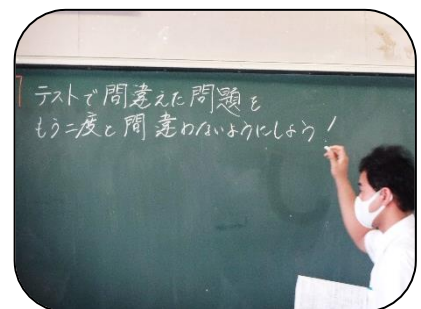 テストで間違えた問題を
もう二度と間違わないようにしよう!